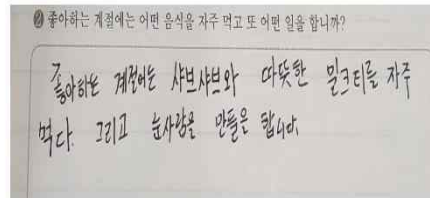 ❷ 좋아하는 계절에는 어떤 음식을 자주 먹고 또 어떤 일을 합니까?
좋아하는 계절에는 샤브샤브와 따뜻한 밀크티를 자주
먹다. 그리고 눈사람을 만들은 합니다.